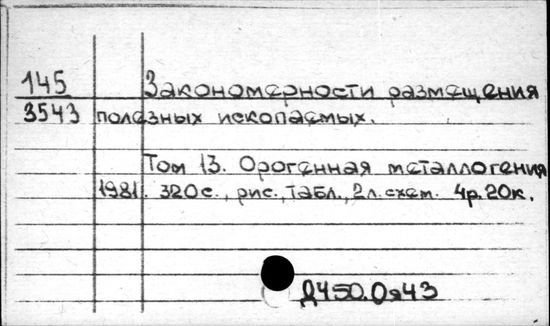 145
3543
Закономерности размещения
полезных ископаемых.
Том 13. Орогенная металлогения
1981. 320с., рис., табл., 2л.схем. 4р.20к.
Д450.0я43